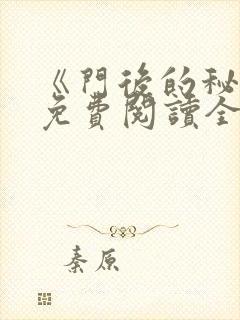 《門後的秘
免費閱讀全
秦原